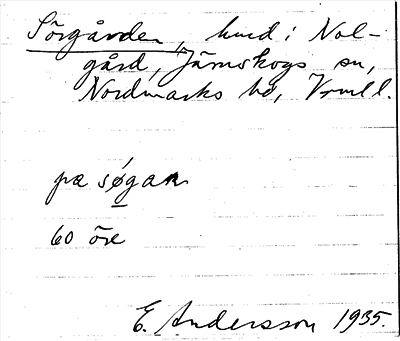 Sörgården, hmd i Nol-
gård, Järnskogs sn,
Nordmarks hd, Vrml.
pa søgan
60 öre
E. Andersson 1935.